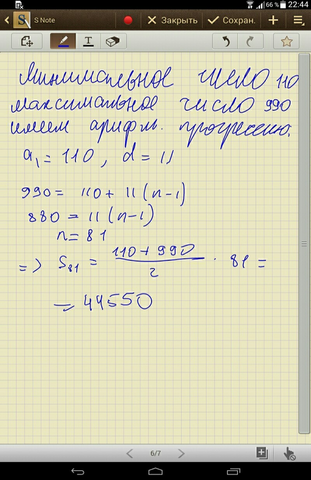 66 % 22:44
S Note Закрыть Сохран.
Минимальное число 110
максимальное число 990
имеем арифм. прогрессию.
a₁ = 110, d = 11
990 = 110 + 11 (n-1)
880 = 11 (n-1)
n = 81
=> S₈₁ = (110 + 990)/2 · 81 =
= 44550
6/7